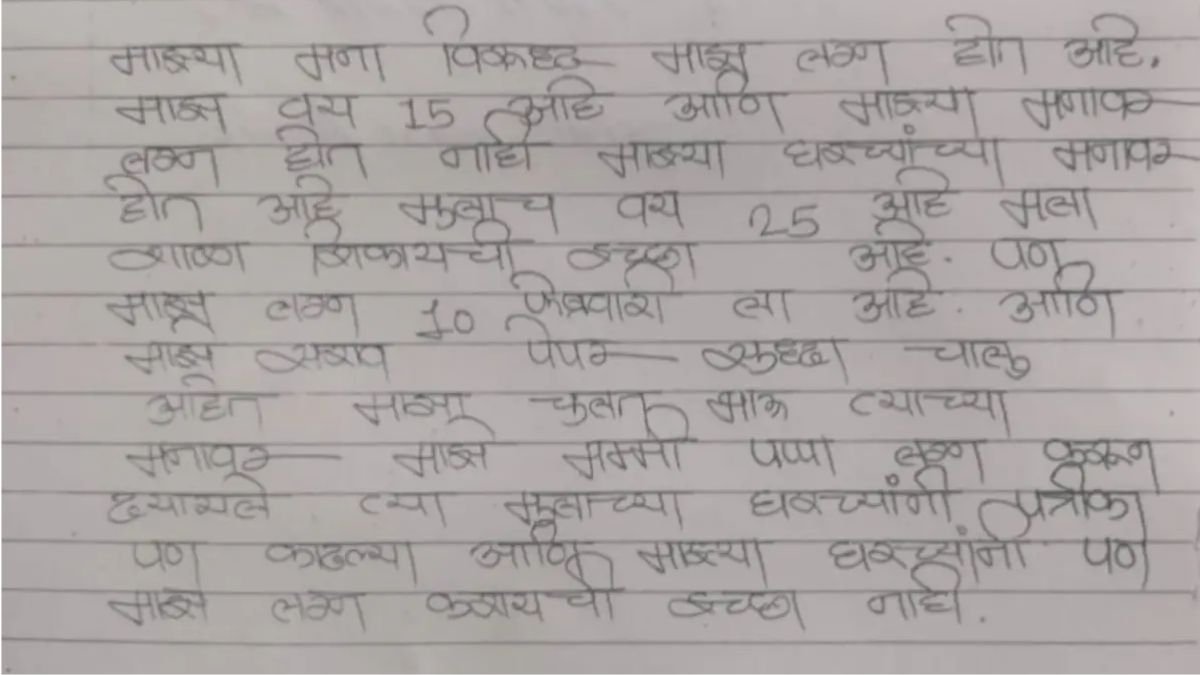 माझ्या मना विरूध्द माझं लग्न होत आहे.
माझ वय 15 आहे आणि माझ्या मनावर
लग्न होत नाही माझ्या घरच्यांच्या मनावर
होत आहे मुलाच वय 25 आहे मला
शाळा शिकायची इच्छा आहे. पण
माझं लग्न 10 फेब्रुवारी ला आहे. आणि
माझ सराव पेपर सुध्दा चालु
आहेत माझा चुलत भाऊ त्याच्या
मनावर माझे मम्मी पप्पा लग्न करून
दयायले त्या मुलाच्या घरच्यांनी पत्रीका
पण काढल्या आणि माझ्या घरच्यांनी पण
माझ लग्न करायची इच्छा नाही.